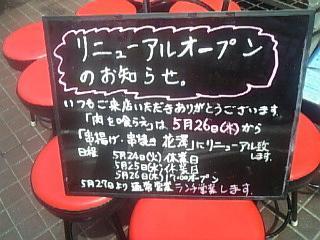 リニューアルオープン
のお知らせ。
いつもご来店いただきありがとうございます。
「肉を喰らえ」は 5月26日(木)から
「串揚げ・串焼き 花」にリニューアル致
します。
日程 5月24日(火)休業日
5月25日(水)休業日
5月26日(木)17:00オープン
5月27日より通常営業ランチ営業します。